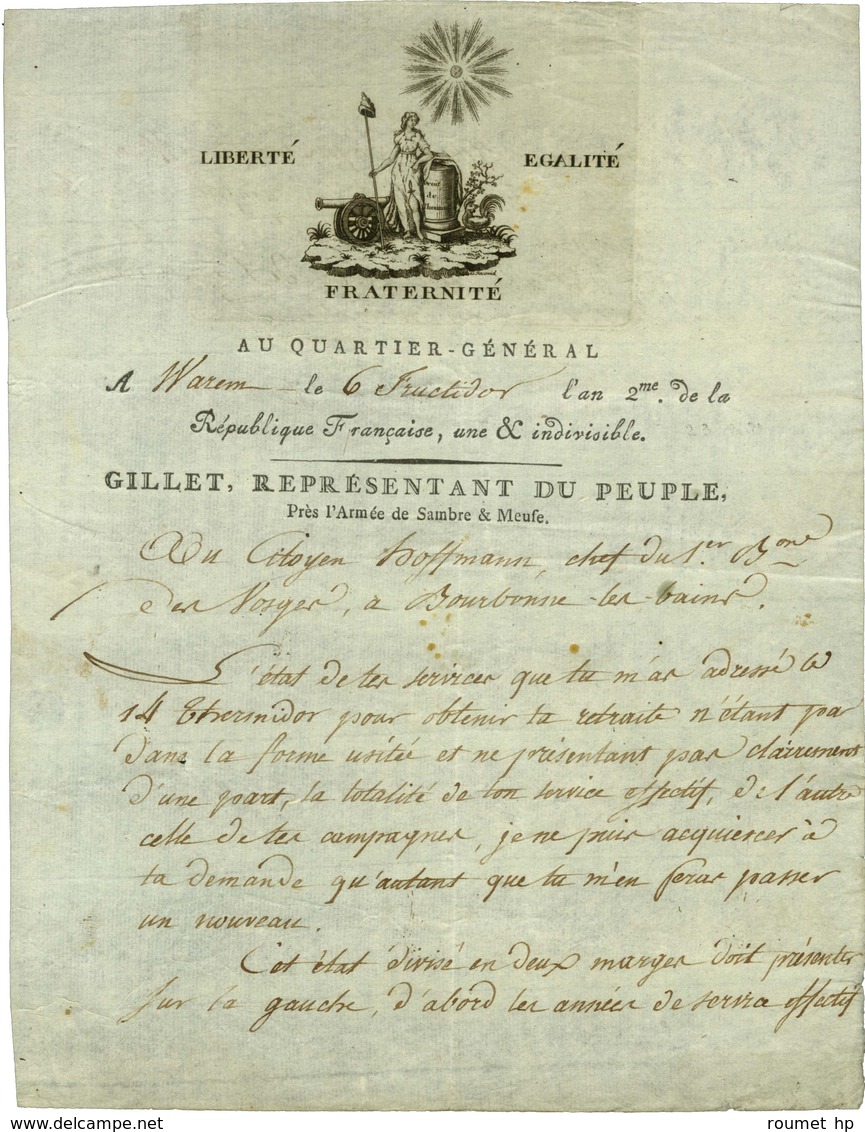 LIBERTÉ EGALITÉ
Droit
de
l'homme
FRATERNITÉ
AU QUARTIER-GÉNÉRAL
A Warem le 6 Fructidor l'an 2me. de la
République Française, une & indivisible.
GILLET, REPRÉSENTANT DU PEUPLE,
Près l'Armée de Sambre & Meuse.
Au Citoyen Hoffmann, chef du 1.er B.one
des Vosges, a Bourbonne-les-bains.
L'état de tes services que tu m'as adressé le
14 Thermidor pour obtenir ta retraite n'étant pas
dans la forme usitée et ne présentant pas clairement
d'une part, la totalité de ton service effectif, de l'autre
celle de tes campagnes, je ne puis acquiescer à
ta demande qu'autant que tu m'en feras passer
un nouveau.
Cet état divisé en deux marges doit présenter
sur la gauche, d'abord les années de service effectif
www.delcampe.net
roumet hp